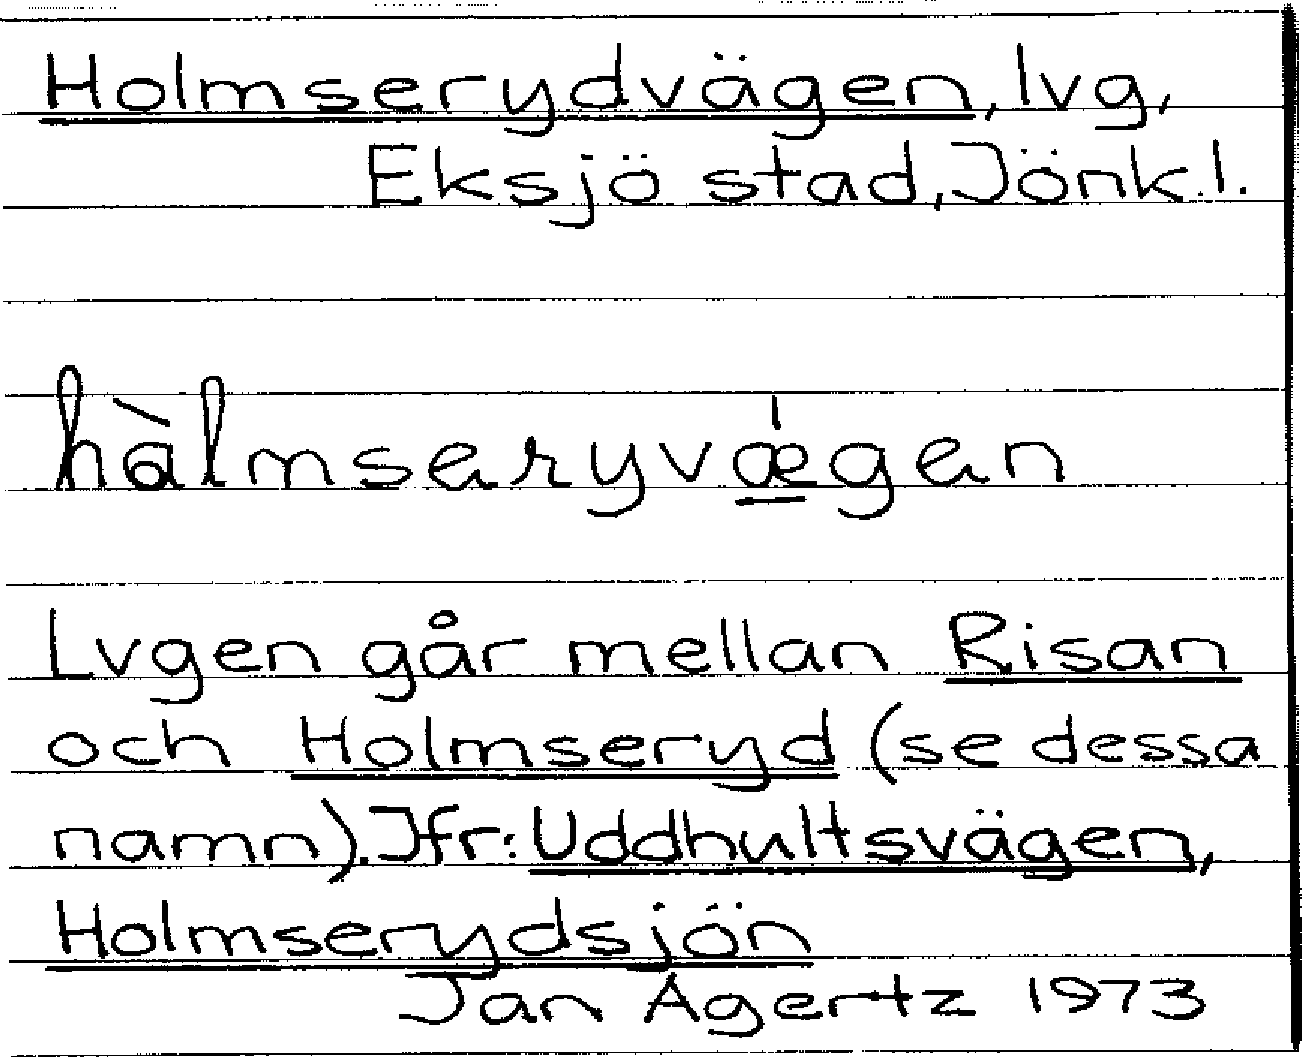 Holmserydvägen, lvg,
Eksjö stad, Jönk. l.
hàlmserywǽgen
Lvgen går mellan Risan
och Holmseryd (se dessa
namn). Jfr: Uddhultsvägen,
Holmserydsjön
Jan Agertz 1973